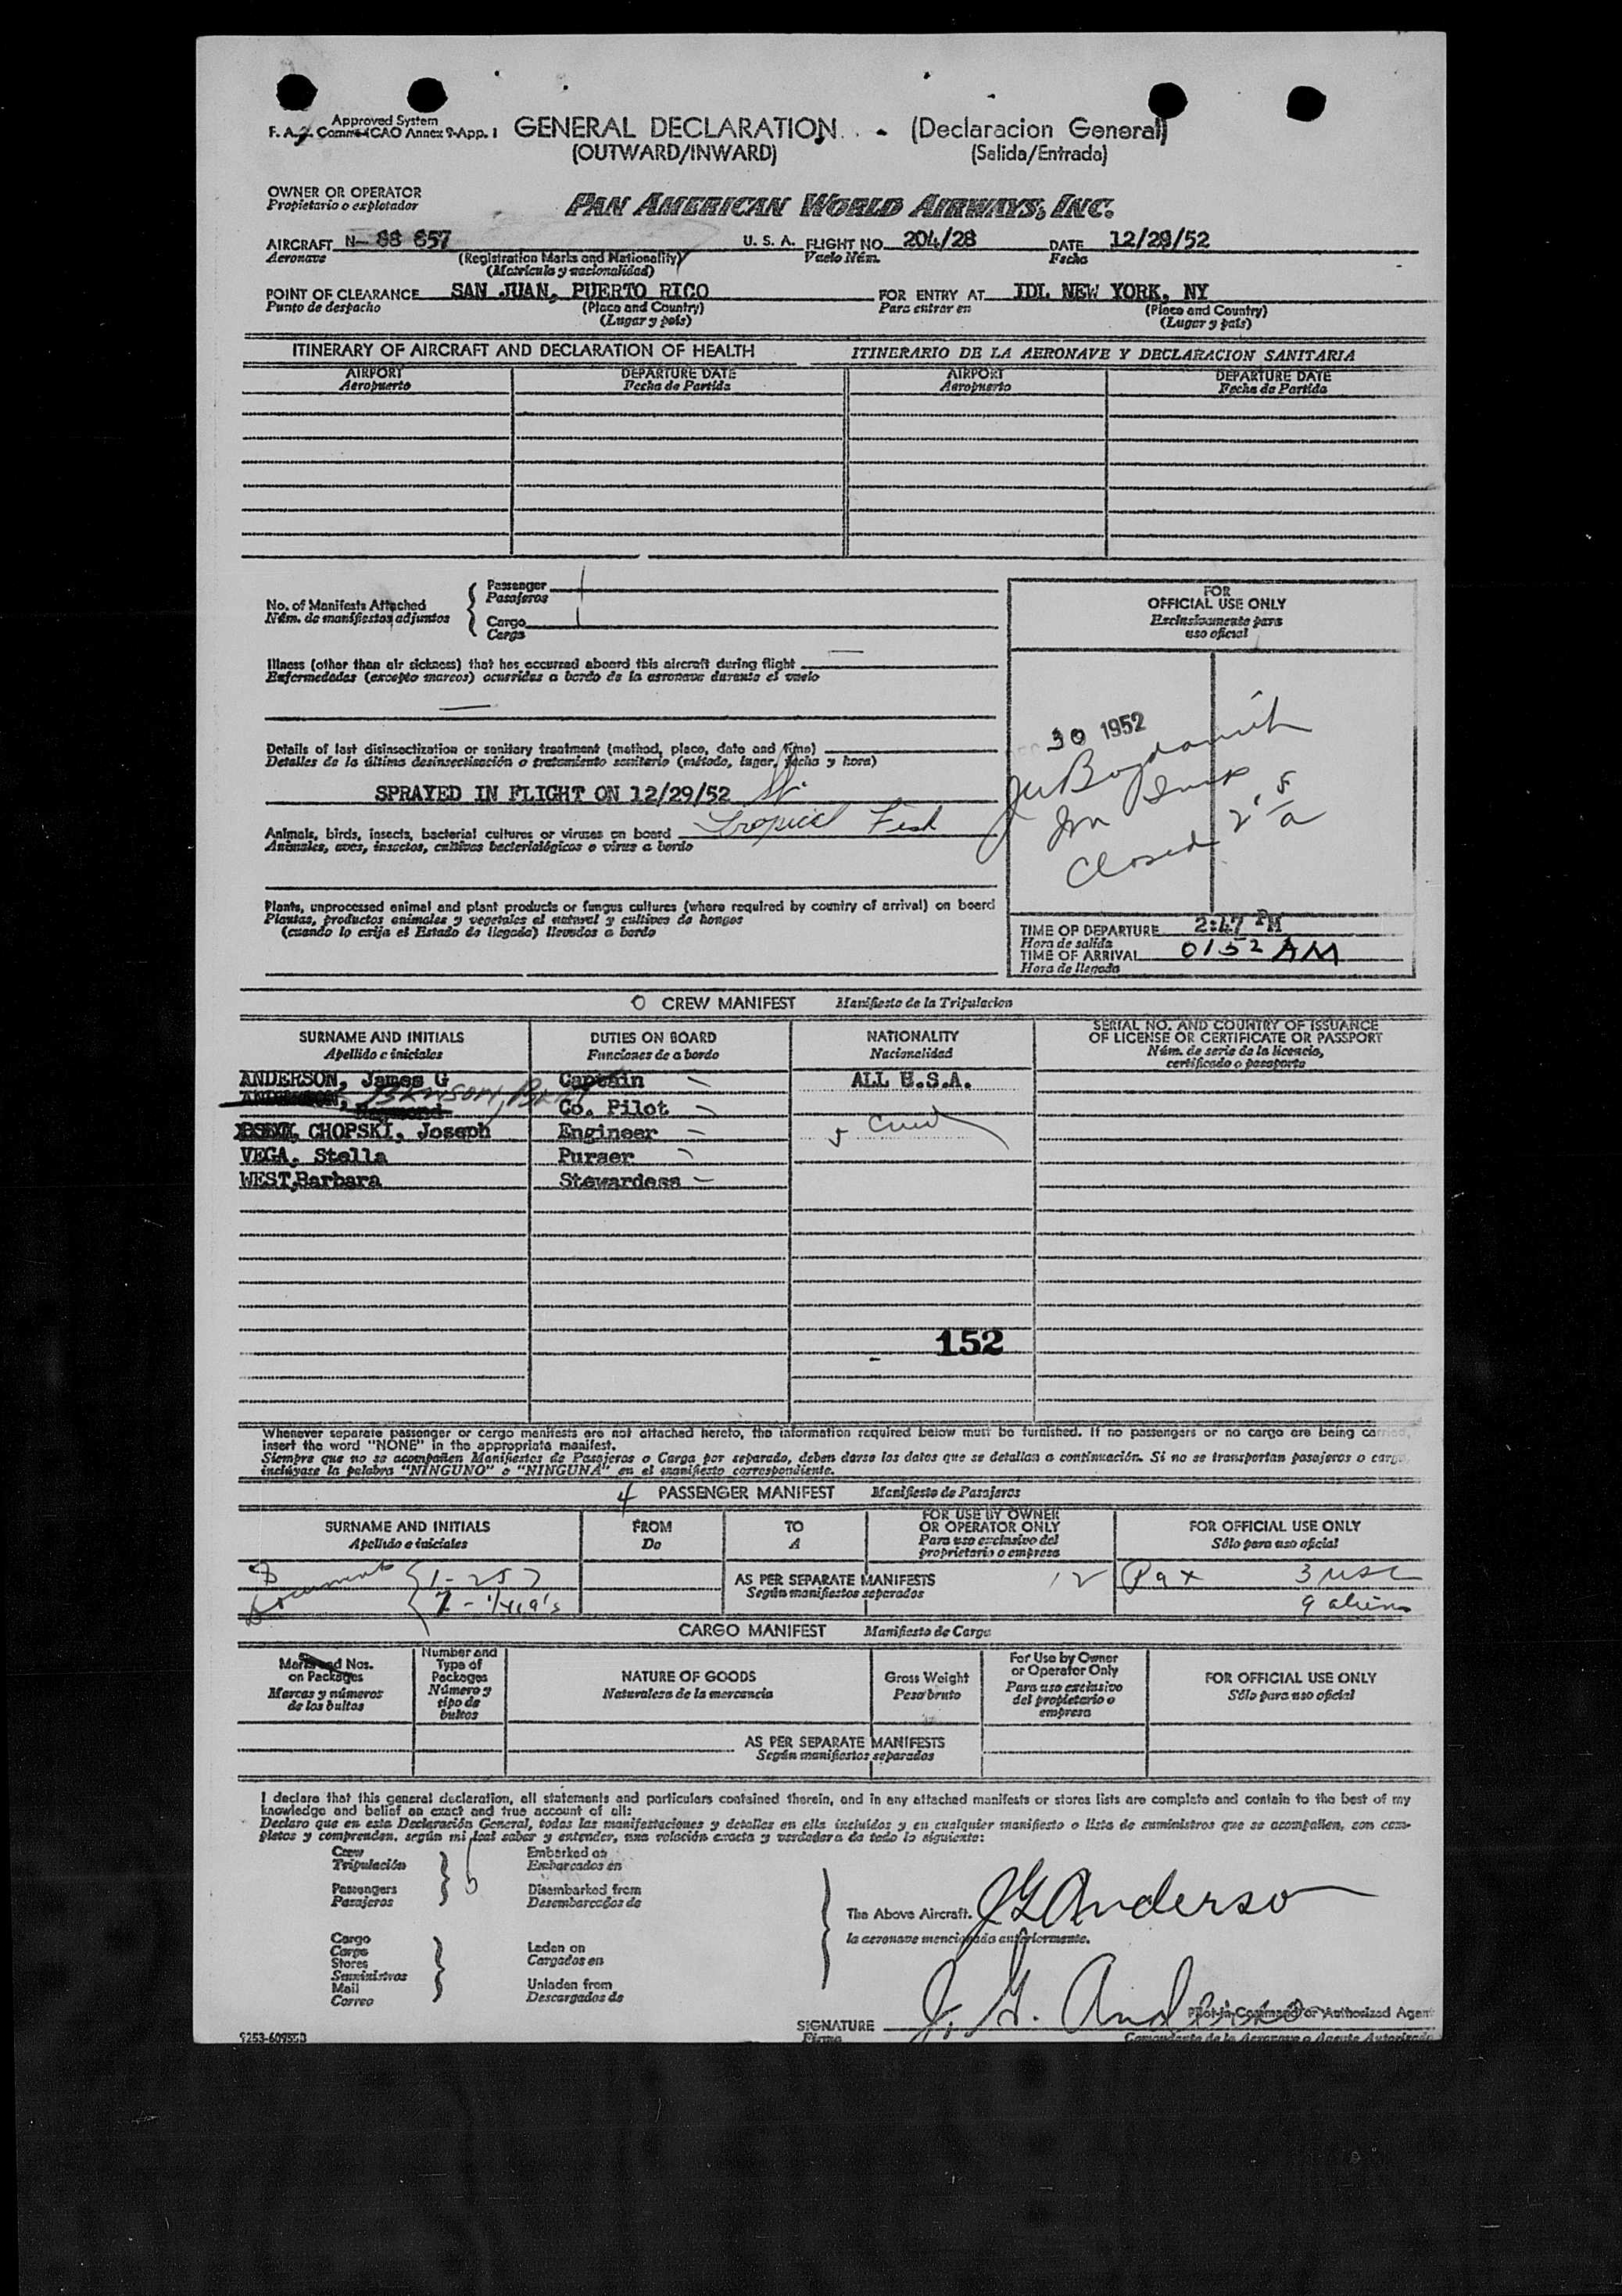 Approved System
F. A. L. Comm-ICAO Annex 9-App. 1
GENERAL DECLARATION - (Declaracion General)
(OUTWARD/INWARD) (Salida/Entrada)
OWNER OR OPERATOR
Propietario o explotador
PAN AMERICAN WORLD AIRWAYS, INC.
AIRCRAFT N- 88 857 U. S. A. FLIGHT NO. 204/28 DATE 12/29/52
Aeronave (Registration Marks and Nationality) Vuelo Núm. Fecha
(Matrícula y nacionalidad)
POINT OF CLEARANCE SAN JUAN, PUERTO RICO FOR ENTRY AT IDL NEW YORK, NY
Punto de despacho (Place and Country) Para entrar en (Place and Country)
(Lugar y país) (Lugar y país)
ITINERARY OF AIRCRAFT AND DECLARATION OF HEALTH ITINERARIO DE LA AERONAVE Y DECLARACION SANITARIA
AIRPORT DEPARTURE DATE AIRPORT DEPARTURE DATE
Aeropuerto Fecha de Partida Aeropuerto Fecha de Partida
No. of Manifests Attached
Núm. de manifiestos adjuntos
Passenger 1
Pasajeros
Cargo 1
Carga
Illness (other than air sickness) that has occurred aboard this aircraft during flight —
Enfermedades (excepto mareos) ocurridas a bordo de la aeronave durante el vuelo
—
Details of last disinsectization or sanitary treatment (method, place, date and time)
Detalles de la última desinsectización o tratamiento sanitario (método, lugar, fecha y hora)
SPRAYED IN FLIGHT ON 12/29/52
Animals, birds, insects, bacterial cultures or viruses on board Tropical Fish
Animales, aves, insectos, cultivos bacteriológicos o virus a bordo
Plants, unprocessed animal and plant products or fungus cultures (where required by country of arrival) on board
Plantas, productos animales y vegetales al natural y cultivos de hongos
(cuando lo exija el Estado de llegada) llevados a bordo
FOR
OFFICIAL USE ONLY
Exclusivamente para
uso oficial
30 1952
Imm
Closed
TIME OF DEPARTURE 2:47 PM
Hora de salida
TIME OF ARRIVAL 0152 AM
Hora de llegada
O CREW MANIFEST Manifiesto de la Tripulacion
SURNAME AND INITIALS DUTIES ON BOARD NATIONALITY SERIAL NO. AND COUNTRY OF ISSUANCE
Apellido e iniciales Funciones de a bordo Nacionalidad OF LICENSE OR CERTIFICATE OR PASSPORT
Núm. de serie de la licencia,
certificado o pasaporte
ANDERSON, James G Captain ALL U.S.A.
Co. Pilot
CHOPSKI, Joseph Engineer 5 Crew
VEGA, Stella Purser
WEST, Barbara Stewardess
152
Whenever separate passenger or cargo manifests are not attached hereto, the information required below must be furnished. If no passengers or no cargo are being carried,
insert the word "NONE" in the appropriate manifest.
Siempre que no se acompañen Manifiestos de Pasajeros o Carga por separado, deben darse los datos que se detallan a continuación. Si no se transportan pasajeros o carga,
inclúyase la palabra "NINGUNO" o "NINGUNA" en el manifiesto correspondiente.
4 PASSENGER MANIFEST Manifiesto de Pasajeros
SURNAME AND INITIALS FROM TO FOR USE BY OWNER FOR OFFICIAL USE ONLY
Apellido e iniciales De A OR OPERATOR ONLY Sólo para uso oficial
Para uso exclusivo del
propietario o empresa
8 Documents 1-257 AS PER SEPARATE MANIFESTS 12 Pax 3 USC
7 - Según manifiestos separados 9 aliens
CARGO MANIFEST Manifiesto de Carga
Marks and Nos.
on Packages
Marcas y números
de los bultos
Number and
Type of
Packages
Número y
tipo de
bultos
NATURE OF GOODS
Naturaleza de la mercancía
Gross Weight
Peso bruto
For Use by Owner
or Operator Only
Para uso exclusivo
del propietario o
empresa
FOR OFFICIAL USE ONLY
Sólo para uso oficial
AS PER SEPARATE MANIFESTS
Según manifiestos separados
I declare that this general declaration, all statements and particulars contained therein, and in any attached manifests or stores lists are complete and contain to the best of my
knowledge and belief an exact and true account of all:
Declaro que en esta Declaración General, todas las manifestaciones y detalles en ella incluídos y en cualquier manifiesto o lista de suministros que se acompañen, son com-
pletos y comprenden, según mi leal saber y entender, una relación exacta y verdadera de todo lo siguiente:
Crew Embarked on
Tripulación Embarcados en
Passengers Disembarked from
Pasajeros Desembarcados de
The Above Aircraft. JG Anderson
la aeronave mencionada anteriormente.
Cargo Laden on
Carga Cargados en
Stores
Suministros
Mail Unladen from
Correo Descargados de
SIGNATURE J. G. Anderson Pilot-in-Command or Authorized Agent
Firma Comandante de la Aeronave o Agente Autorizado
9253-60955D